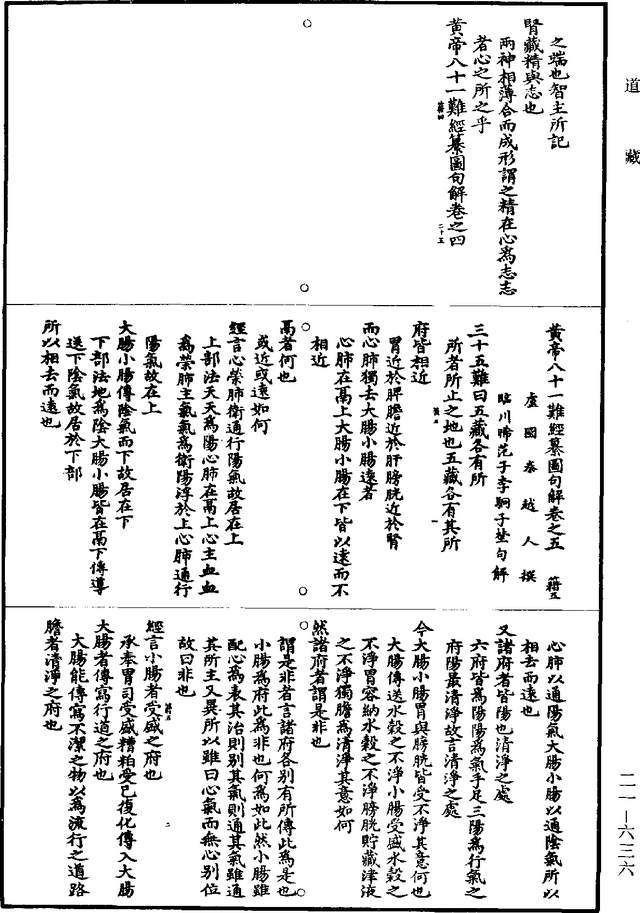 道藏
之端也智主所記
腎藏精與志也
兩神相薄合而成形謂之精在心為志志
者心之所之乎
黃帝八十一難經纂圖句解卷之四
籍四
二十五
黃帝八十一難經纂圖句解卷之五
籍五
盧國秦越人撰
臨川晞范子李駉子埜句解
三十五難曰五藏各有所
所者所止之地也五藏各有其所
府皆相近
胃近於脾膽近於肝膀胱近於腎
而心肺獨去大腸小腸遠者
心肺在鬲上大腸小腸在下皆以遠而不
相近
鬲者何也
或近或遠如何
經言心榮肺衛通行陽氣故居在上
上部法天天為陽心肺在鬲上心主血血
為榮肺主氣氣為衛陽浮於上心肺通行
陽氣故在上
大腸小腸傳陰氣而下故居在下
下部法地為陰大腸小腸皆在鬲下傳導
送下陰氣故居於下部
所以相去而遠也
心肺以通陽氣大腸小腸以通陰氣所以
相去而遠也
又諸府者皆陽也清淨之處
六府皆為陽陽為氣手足三陽為行氣之
府陽最清淨故言清淨之處
今大腸小腸胃與膀胱皆受不淨其意何也
大腸傳送水穀之不淨小腸受盛水穀之
不淨胃容納水穀之不淨膀胱貯藏津液
之不淨獨膽為清淨其意如何
然諸府者謂是非也
謂是非者言諸府各別有所傳此為是也
小腸為府此為非也何為如此然小腸雖
配心為表其治則別其氣則通其氣雖通
其所主又異所以雖曰心氣而無心別位
故曰非也
經言小腸者受盛之府也
承奉胃司受盛糟粕受已復化傳入大腸
大腸者傳寫行道之府也
大腸能傳寫不潔之物以為流行之道路
膽者清淨之府也
二一—六三六